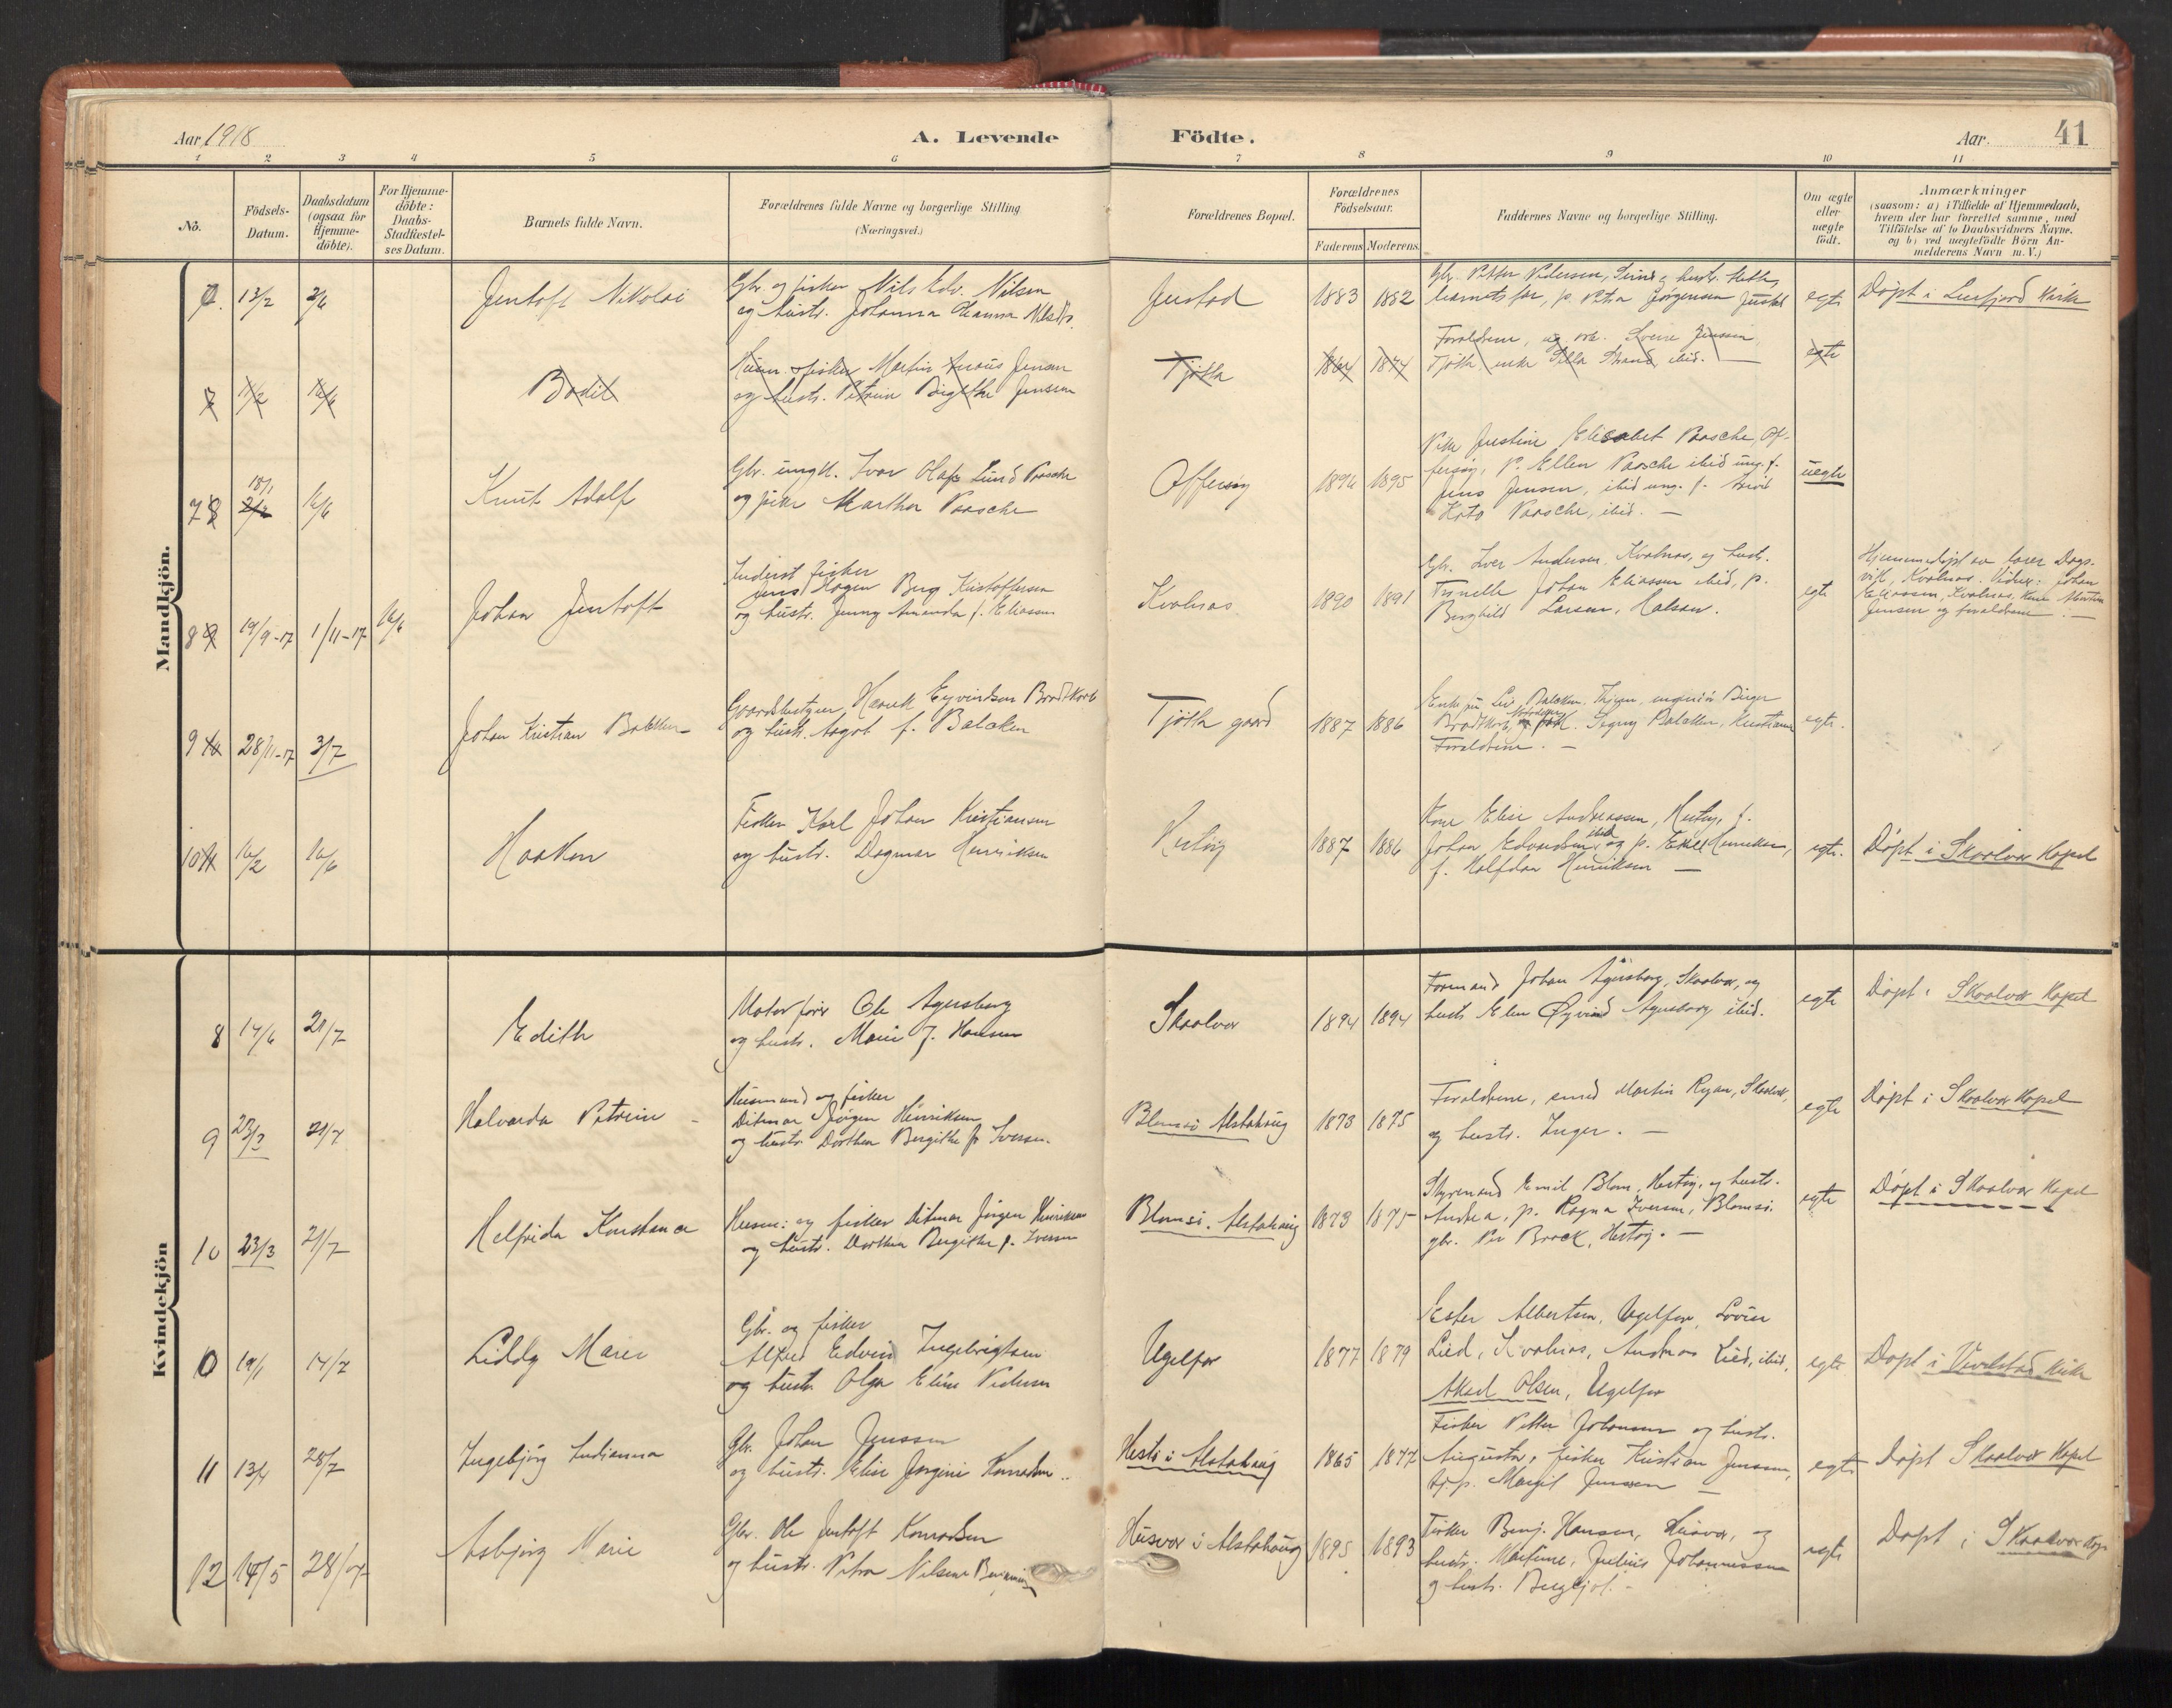 Aar 1918
A. Levende
Födte.
Aar.
41
1 2 3 4 5 6 7 8 9 10 11
No.
Födsels-
Datum.
Daabsdatum
(ogsaa for
Hjemme-
döbte).
For Hjemme-
döbte:
Daabs-
Stadfæstel-
ses Datum.
Barnets fulde Navn.
Forældrenes fulde Navne og borgerlige Stilling
(Næringsvei.)
Forældrenes Bopæl.
Forældrenes
Födselsaar.
Faderens Moderens
Faddernes Navne og borgerlige Stilling.
Om ægte
eller
uægte
födt.
Anmærkninger
(saasom: a) i Tilfælde af Hjemmedaab,
hvem der har forrettet samme, med
Tilföielse af to Daabsvidners Navne.
og b) ved uægtefödte Börn An-
melderens Navn m. V.)
Mandkjön.
13/2
Jentoft Nikolai
Gbr. og fisker Nils Edv. Nilsen
og hustr. Johanna Hanna
1883 1882
Gbr. Petter Pedersen,
barnets far, p. Petra Jørgensen
egte
Døpt i Kirke
7 11/2 16/6
Bodil
fisker Martin Jensen
og hustr. Petrine Birgithe Jensen
Tjøtta
1864 1874
Forældrene, og
Tjøtta enke Strand ibid. —
egte
7 8 18/1 16/6
Knut Adolf
Gbr. ungk. Ivar Olaf Lund Paasche
og pike Martha Paasche
Offersøy
1894 1895
Pike Justine Elisabet Paasche, Of-
fersøy, p. Ellen Paasche ibid ung. f.
Jens Jensen, ibid ung. f.
Paasche, ibid. —
uegte
8 9 19/9-17 1/11-17 16/6
Johan Jentoft
Inderst fisker
Jens Hagen Berg Kristoffersen
og hustr. Jenny Amanda f. Eliassen
Kvalnes
1890 1891
Gbr. Iver Andersen, Kvalnes, og hustr.
Johan Eliassen ibid, p.
Borghild Larsen,
egte
Hjemmedøpt av lærer Dags-
vik, Kvalnes. Vidner: Johan
Eliassen, Kvalnes,
Jensen og forældrene. —
9 10 28/11-17 3/7
Johan Kristian Balcken
Gaardsbestyrer Hauk Eyvindson Brodtkorb
og hustr. Aagot f. Balcken
Tjøtta gaard
1887 1886
Balcken, ingeniør Birger
Brodtkorb, Signy Balcken, Kristiania
Forældrene. —
egte.
10 11 16/2 16/6
Haakon
Fisker Karl Johan Kristiansen
og hustr. Dagmar Henriksen
Hestøy
1887 1886
Kone Elise Andreassen, Hestøy, f.
Johan Edvardsen ibid og p. Henriksen,
f. Halfdan Henriksen —
egte.
Døpt i Skaalvær Kapel
Kvindekjön
8 14/6 21/7
Edith
Motorfører Ole Agersborg
og hustr. Marie f. Hansen
Skaalvær
1894 1894
Formand Johan Agersborg, Skaalvær, og
hustr. Elen Øyvind Agersborg ibid.
egte
Døpt i Skaalvær Kapel
9 23/3 21/7
Halvarda Petrine
Husmand og fisker
Ditmar Jørgen Henriksen
og hustr. Dorthea Bergithe f. Iversen.
Blomsø Alstahaug
1873 1875
Forældrene, smed Martin Ryan, Skaalvær,
og hustr. Inger. —
egte
Døpt i Skaalvær Kapel
10 23/3 21/7
Helfrida Konstance
Husm: og fisker Ditmar Jørgen Henriksen
og hustr. Dorthea Bergithe f. Iversen
Blomsø. Alstahaug
1873 1875
Styrmand Emil Blom, Hestøy, og hustr.
Andrea, p. Ragna Iversen, Blomsø.
gbr. Per Brock, Hestøy. —
egte
Døpt i Skaalvær Kapel
10 19/1 14/7
Liddy Marie
Gbr. og fisker
Alfred Edvin Ingebrigtsen
og hustr. Olga Eline Pedersen
Ugelfor
1877 1879
Ester Albertsen, Ugelfor,
Lied, Kvalnes, Andreas Lied, ibid.
Aksel Olsen, Ugelfor
egte
Døpt i Vevelstad Kirke
11 13/4 28/7
Ingebjørg Indianna
Gbr. Johan Jenssen
og hustr. Elise Jorgine
Hestø i Alstahaug
1865 1877
Fisker Petter Johansen og hustr.
Augusta, fisker Kristian Jenssen,
p. Margit Jenssen —
egte
Døpt Skaalvær Kapel
12 14/5 28/7
Asbjørg Marie
Gbr. Ole Jentoft Konradsen
og hustr. Petra Nilsine
Husvær i Alstahaug
1895 1893
Fisker Benj. Hansen, Husvær, og
hustr. Martine, Julius Johannessen
og hustr. Bergljot. —
egte
Døpt i Skaalvær Kap.